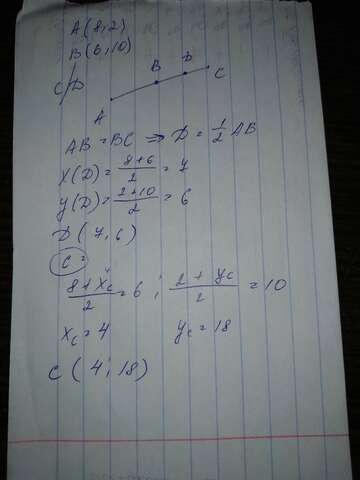 A(8,2)
B(6,10)
C, D
A B D C
AB = BC ⇒ D = 1/2 AB
X(D) = (8+6)/2 = 7
y(D) = (2+10)/2 = 6
D(7,6)
C =
(8+Xc)/2 = 6 ; (2+yc)/2 = 10
xc = 4 yc = 18
C (4; 18)